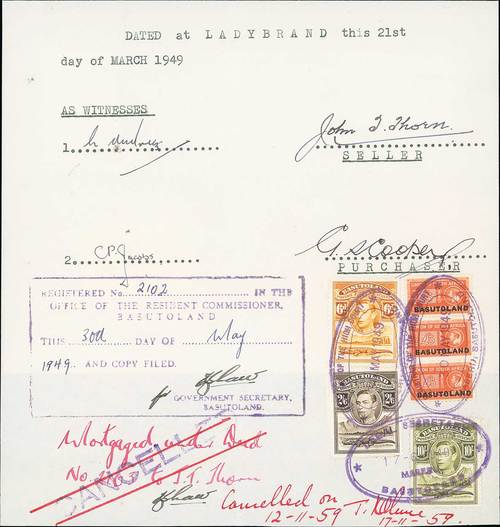 DATED at LADYBRAND this 21st
day of MARCH 1949
AS WITNESSES
1.
John T. Thorn.
SELLER
2. C.P. Jacobs.
G S Cooper
PURCHASER
REGISTERED No. 2102 IN THE
OFFICE OF THE RESIDENT COMMISSIONER,
BASUTOLAND
THIS 30th DAY OF May
1949. AND COPY FILED.
GOVERNMENT SECRETARY,
BASUTOLAND.
BASUTOLAND
6d 6d
BASUTOLAND
2/6 2/6
BASUTOLAND
BASUTOLAND
BASUTOLAND
BASUTOLAND
10/- 10/-
MASERU
BASUTOLAND
CANCELLED
Mortgaged under Deed
No. to J.T. Thorn
Cancelled on
12-11-59
17-11-59